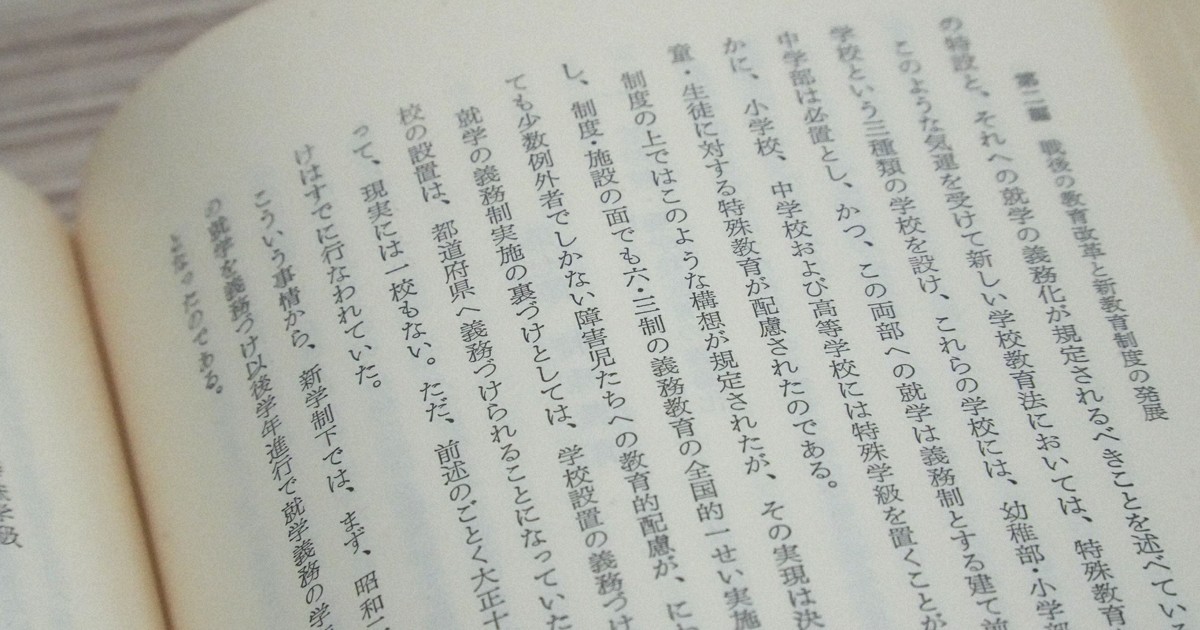 第二編 戦後の教育改革と新教育制度の発展
の特設と、それへの就学の義務化が規定されるべきことを述べている
このような気運を受けて新しい学校教育法においては、特殊教育
学校という三種類の学校を設け、これらの学校には、幼稚部・小学部
中学部は必置とし、かつ、この両部への就学は義務制とする建て前
かに、小学校、中学校および高等学校には特殊学級を置くことが
童・生徒に対する特殊教育が配慮されたのである。
制度の上ではこのような構想が規定されたが、その実現は決
し、制度・施設の面でも六・三制の義務教育の全国的一せい実施
ても少数例外者でしかない障害児たちへの教育的配慮が、にわ
就学の義務制実施の裏づけとしては、学校設置の義務づけ
校の設置は、都道府県へ義務づけられることになっていた
って、現実には一校もない。ただ、前述のごとく大正十
けはすでに行なわれていた。
こういう事情から、新学制下では、まず、昭和
の就学を義務づけ以後学年進行で就学義務の学
となったのである。